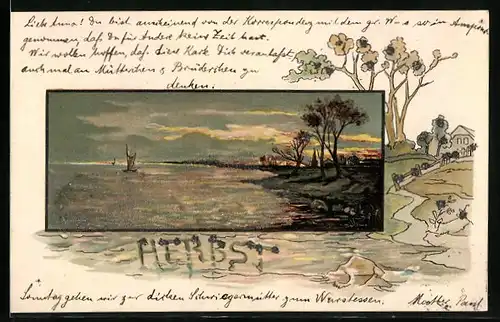 Liebe Anna! Du bist anscheinend von der Korrespondenz mit dem gr. W-s so in Anspruch
genommen, daß Du für Andere keine Zeit hast.
Wir wollen hoffen, daß diese Karte Dich veranlaßt,
auch mal an Mütterchen & Brüderchen zu
denken.
HERBST
Sonntag gehen wir zur dicken Schwiegermutter zum Wurstessen.